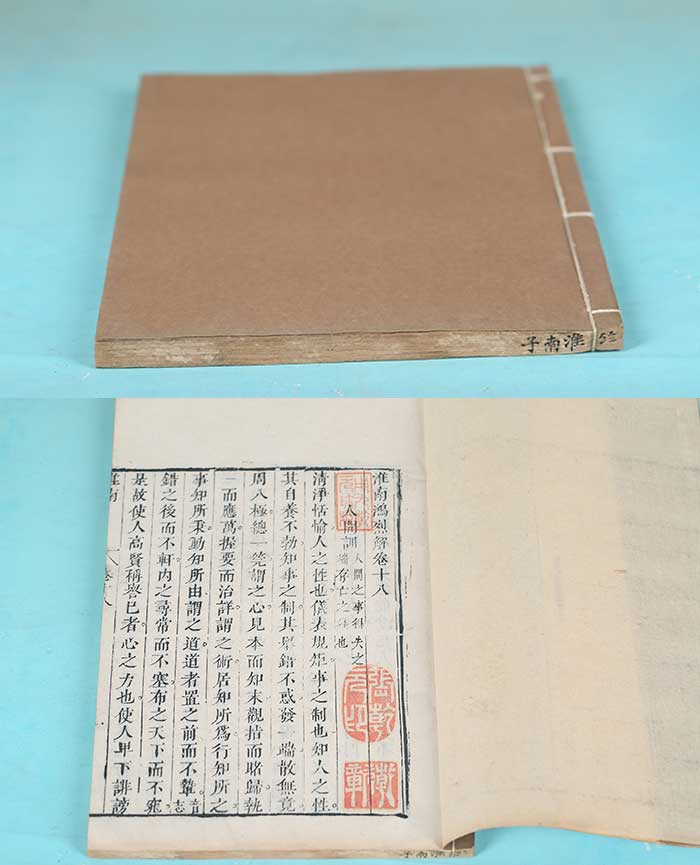 淮南子
淮南鴻烈解卷十八
人間訓
人間之事得失之
存亡之
也
清淨恬愉人之性也儀表規矩事之制也知人之性
其自養不勃知事之制其舉錯不惑發一端散無竟
周八極總一筦謂之心見本而知末觀指而睹歸執
一而應萬握要而治詳謂之術居知所為行知所之
事知所秉動知所由謂之道道者置之前而不𨎌音志
錯之後而不軒內之尋常而不塞布之天下而不窕
是故使人高賢稱譽已者心之方也使人卑下誹謗
淮南
卷十八
一
淮南子